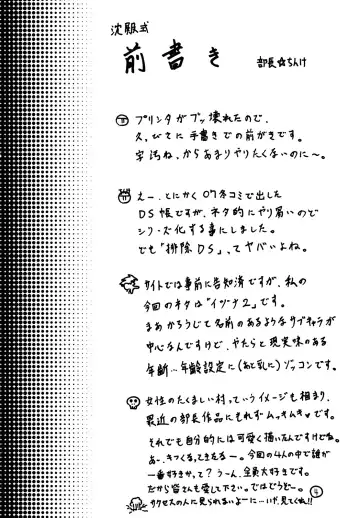 沈服式
前書き
部長☆ちんけ
プリンタがブッ壊れたので、
久々びさに手書きでの前がきです。
字汚ね、からあまりやりたくないのに〜。
えー、とにかく07冬コミで出した
DS帳ですが、ネタ的にやり易いので
シリーズ化する事にしました。
でも「排除DS」、てヤバいよね。
サイトでは事前に告知済ですが、私の
今回のネタは"イヅナ2"です。
まあかろうじて名前のあるようなサブキャラが
中心なんですけど、やたらと現実味のある
年齢設定に(あと乳に)ゾッコンです。
女性のたくましい村っていうイメージも相まり、
最近の部長作品にもれずムッキムキャです。
それでも自分的には可愛く描いたんですけどね。
あー、きつくる、てきたなー。今回の4人の中で誰が
一番好きかって?うーん、全員大好きです。
だから皆さんも愛して下さい。ではどうぞー。
4
サクセスの人に見られないよーに…いや、見てくれ!!